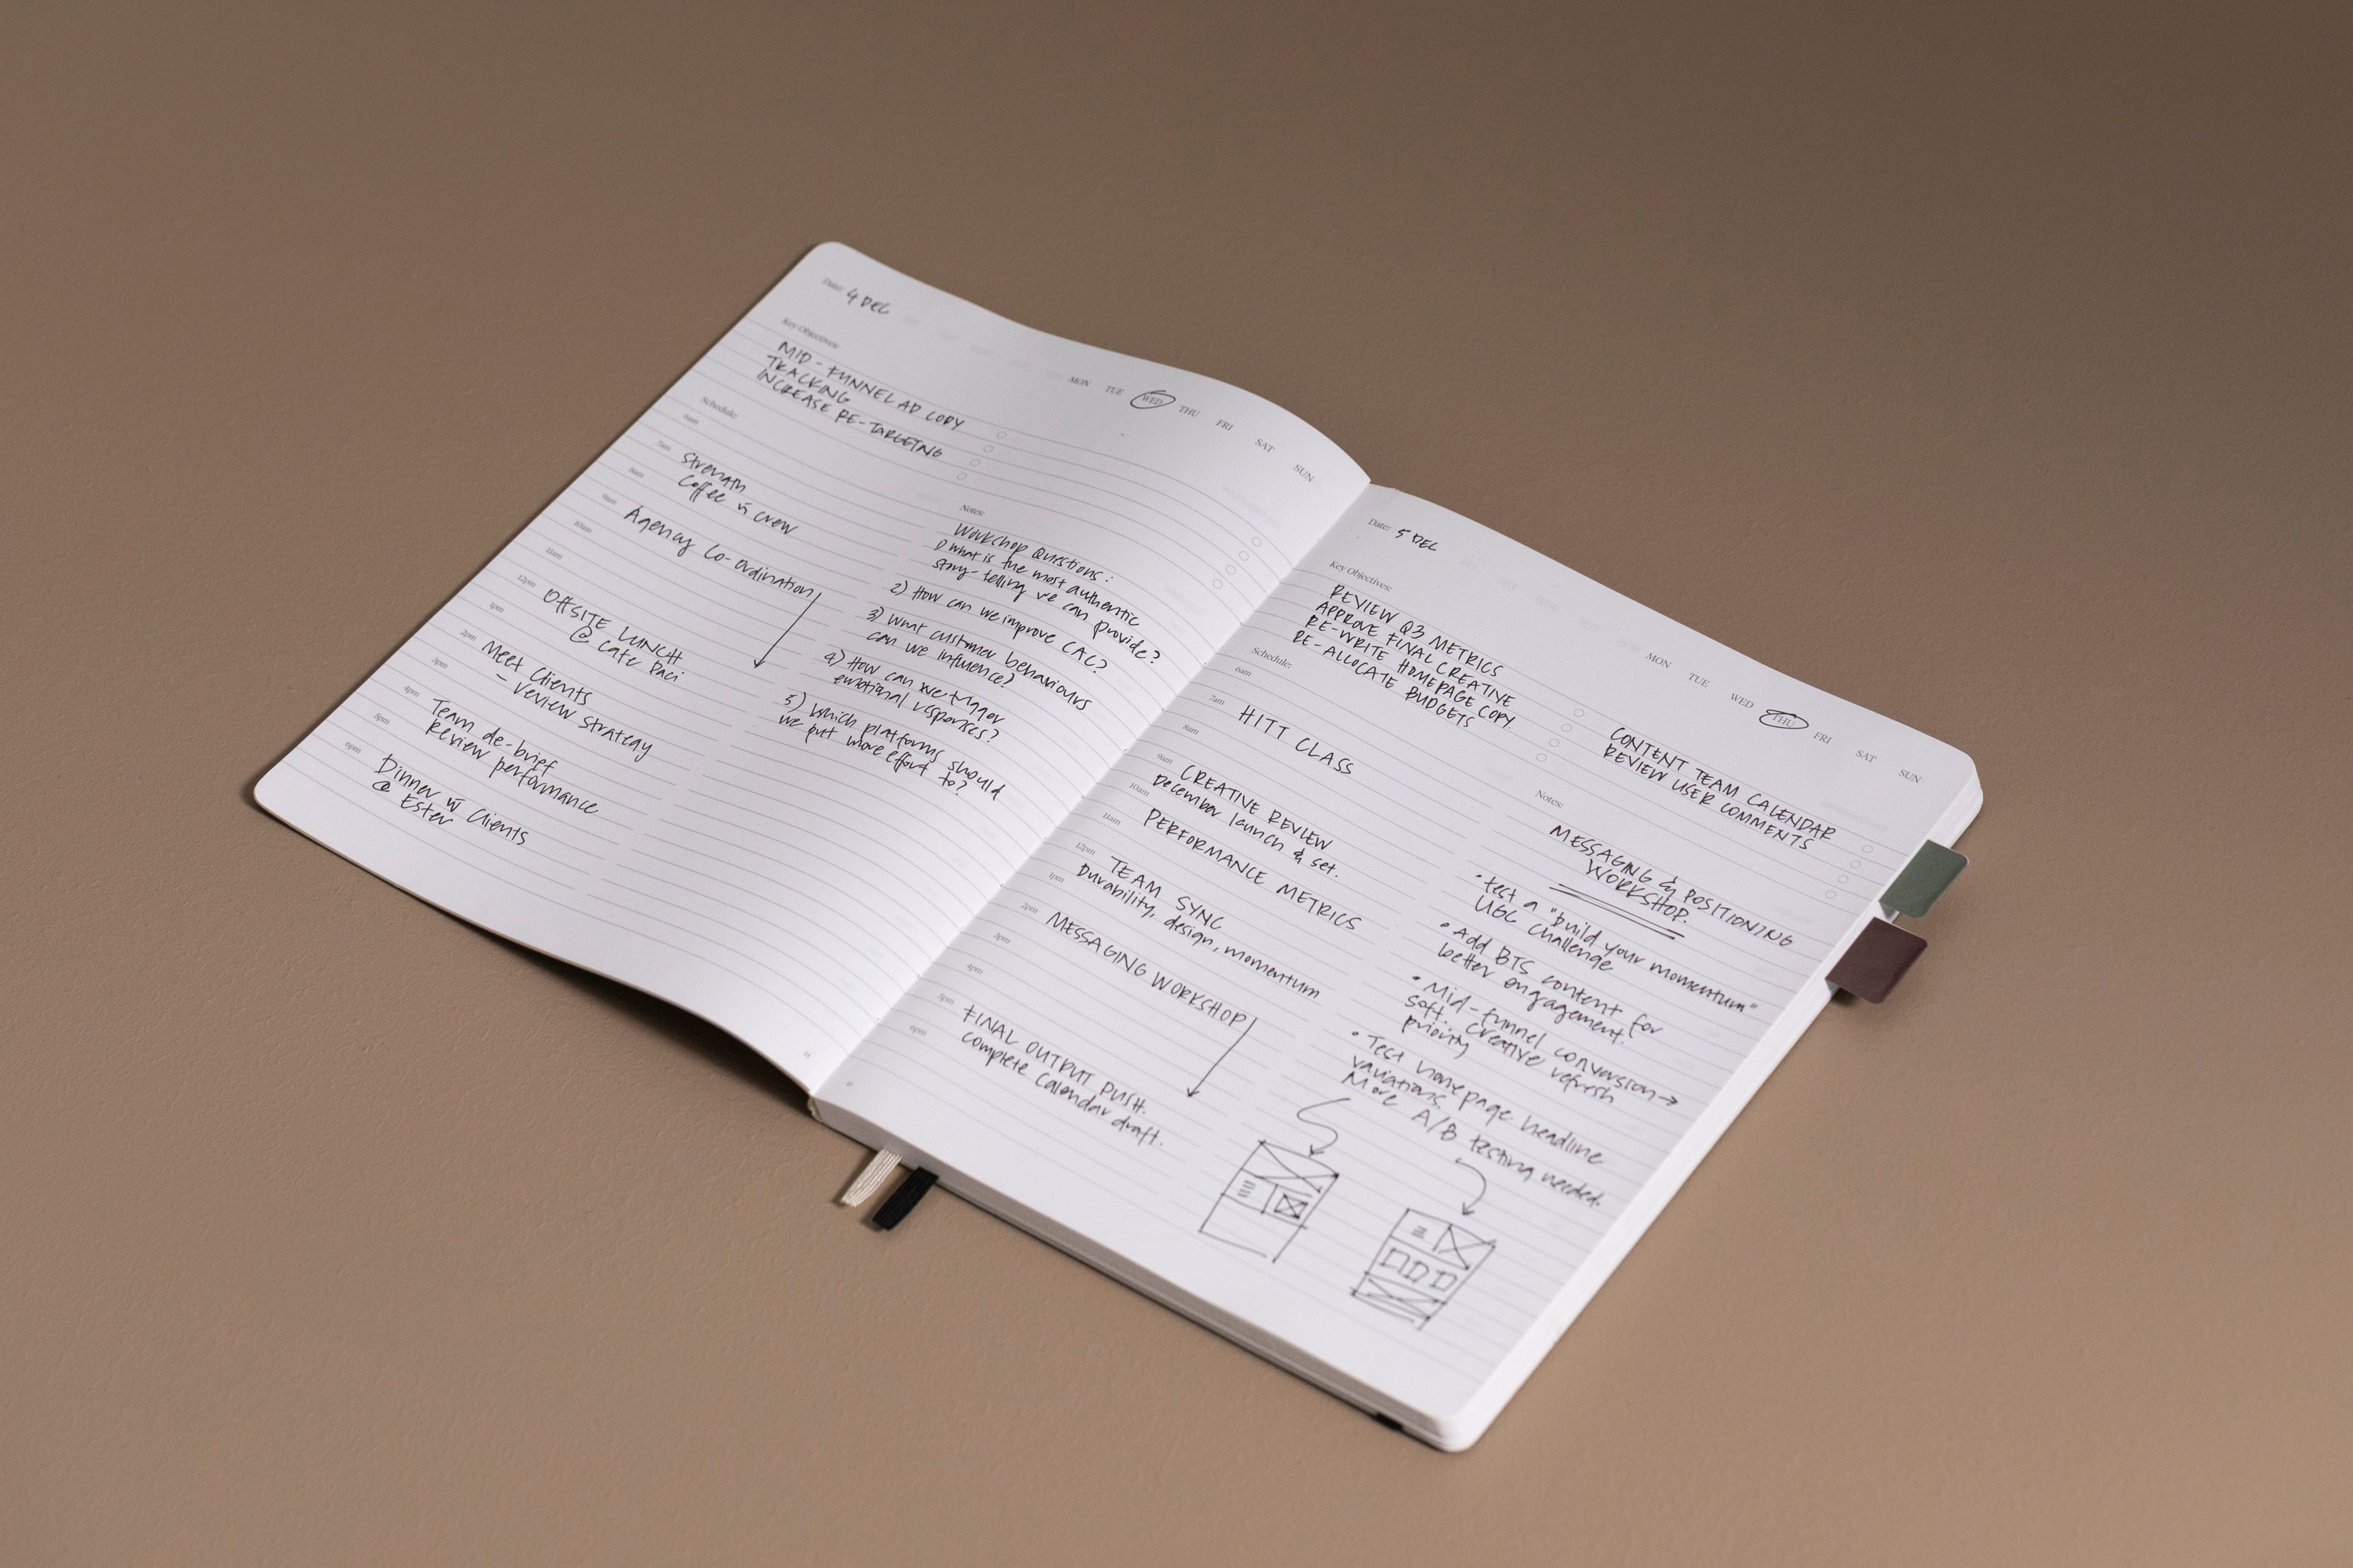 Date: 4 DEC
MON TUE WED THU FRI SAT SUN
Key Objectives:
MID-FUNNEL AD COPY
TRACKING
INCREASE RE-TARGETING
Schedule:
6am
7am Strength
8am Coffee w crew
9am Agency Co-ordination
10am
11am
12pm OFFSITE LUNCH
1pm @ Cafe Paci
2pm Meet Clients
3pm - review strategy
4pm Team de-brief
5pm Review performance
6pm Dinner w Clients
@ Ester
Notes:
Workshop Questions:
1) What is the most authentic
story-telling we can provide?
2) How can we improve CAC?
3) What customer behaviours
can we influence?
4) How can we trigger
emotional responses?
5) Which platforms should
we put more effort to?
14
Date: 5 DEC
MON TUE WED THU FRI SAT SUN
Key Objectives:
REVIEW Q3 METRICS
APPROVE FINAL CREATIVE
RE-WRITE HOMEPAGE COPY
RE-ALLOCATE BUDGETS
CONTENT TEAM CALENDAR
REVIEW USER COMMENTS
Schedule:
6am
7am HITT CLASS
8am
9am CREATIVE REVIEW
10am December launch & set.
11am PERFORMANCE METRICS
12pm TEAM SYNC
1pm Durability, design, momentum
2pm MESSAGING WORKSHOP
3pm
4pm
5pm FINAL OUTPUT PUSH.
6pm Complete Calendar draft.
Notes:
MESSAGING & POSITIONING
WORKSHOP.
• test a "build your momentum"
UGC challenge
• Add BTS content for
better engagement.
• Mid-funnel conversion →
soft. creative refresh
priority
• Test homepage headline
variations.
More A/B testing needed.